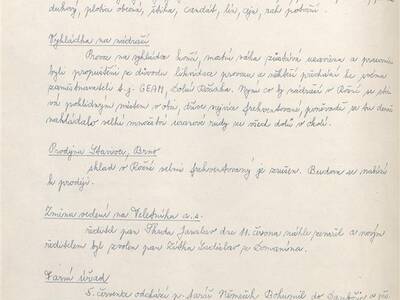 duhový, plotice obecná, štika, candát, lín, úhoř, rak potoční.
Vyhládka na nádraží
Provoz na vykládce končí, mostní váha zůstává uzavřena a pracovníci
byli propuštěni z důvodu likvidace provozu a někteří přechází ke svému
zaměstnavateli t.j. GEAM, Dolní Rožínka. Nyní se by nádraží v Rožné se stá-
vá poklidným místem v obci, dříve nejvíce frekventované, poněvadž se tu denně
nakládalo velké množství uranové rudy ze všech dolů v okolí.
Prodejna Stavivo, Brno
sklad v Rožné velmi frekventovaný je zrušen. Budova se nabízí
k prodeji.
Změna vedení na Veletníku a.s.
ředitel pan Jaroslav dne 11. června náhle zemřel a novým
ředitelem byl zvolen pan Ladislav z Domanína.
Farní úřad
5. července odchází p. farář Němeček Bohumil do